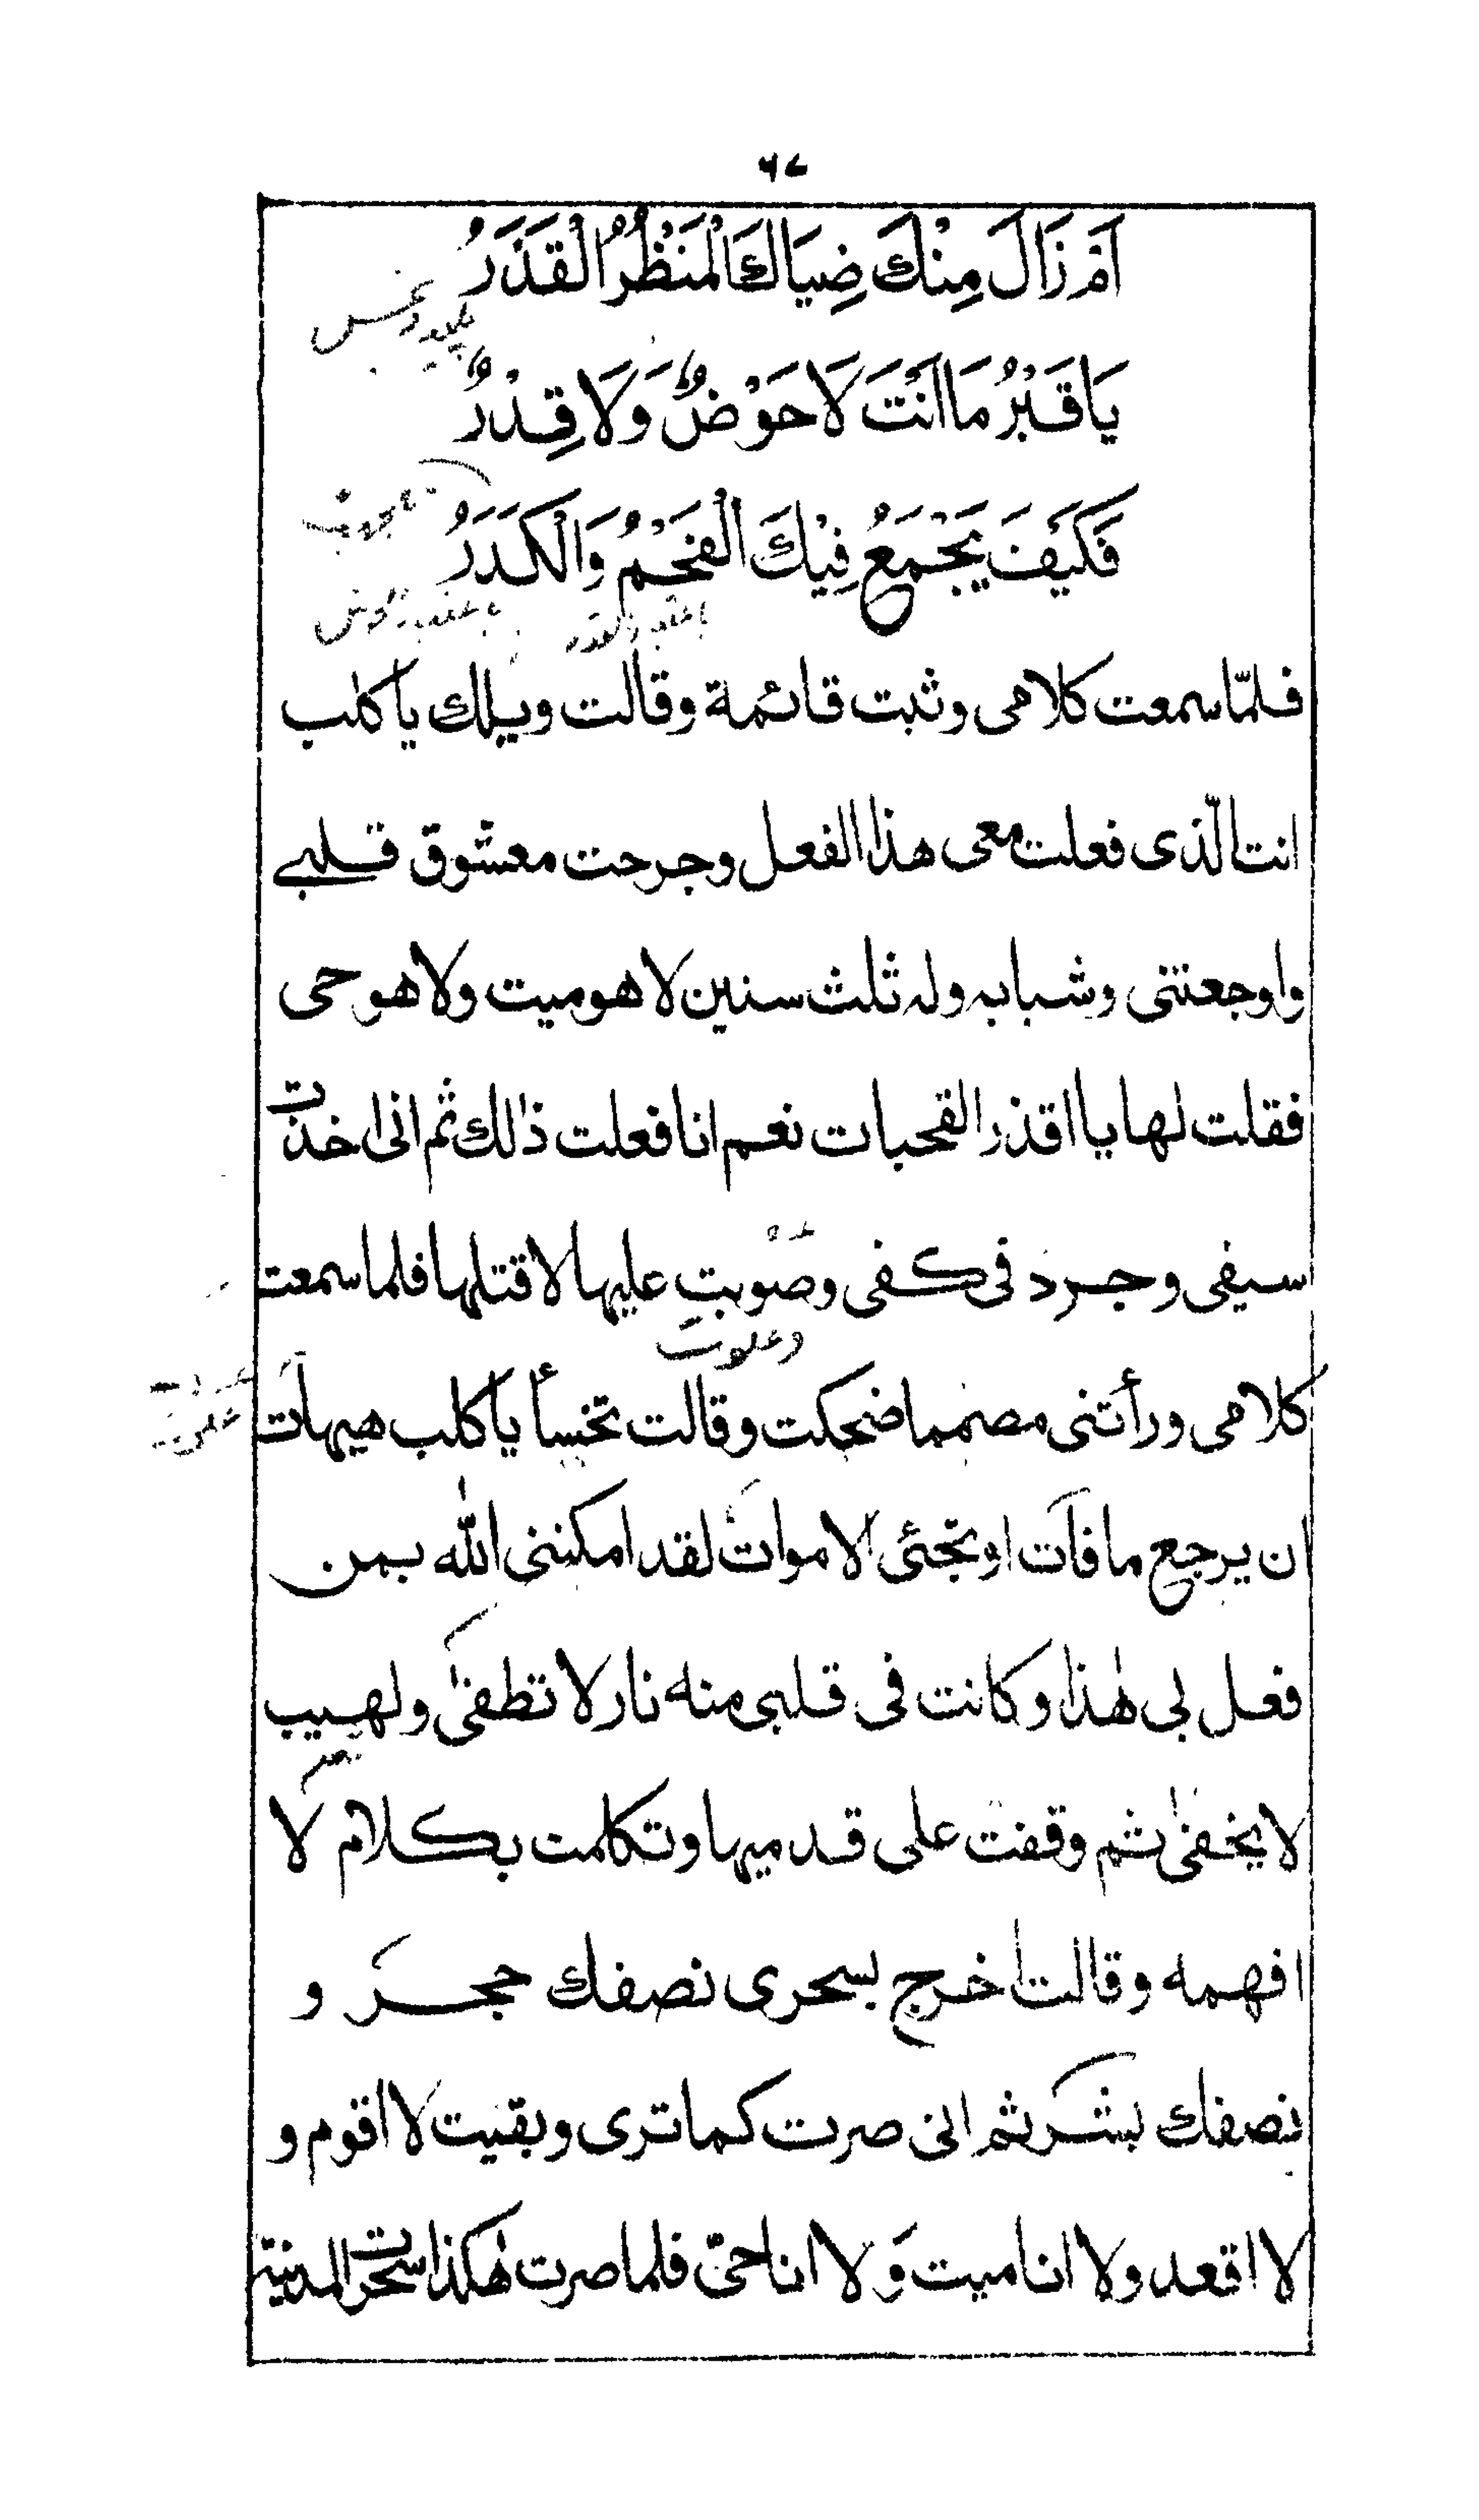 ٦٧
اَمْ زَالَ مِنْكَ ضِيَاكَ الْمَنْظَرُ الْقَذَرُ
يَا قَبْرُ مَا اَنْتَ لَا حَوْضٌ وَلَا قِدْرٌ
فَكَيْفَ يَجْمَعُ فِيْكَ الْفَحْمُ وَالْكَدَرُ
فلمّا سمعت كلامى وثبت قائمة وقالت ويلك يا كلب
انت الّذى فعلت معى هذا الفعل وجرحت معشوق قلبے
واوجعتنى وشبابه وله ثلث سنين لا هو ميت ولا هو حى
فقلت لها يا اقذر القحبات نعم انا فعلت ذالك ثم انى اخذت
سيفى وجرد فى كفى وصَوْبت عليها لاقتلها فلما سمعت
وعلوت
كلامى ورأتنى مصمما ضحكت وقالت تخسأ يا كلب هيهات
ان يرجع ما فات او تجئى الاموات لقد امكننى الله بمن
فعل بى هٰذا وكانت فى قلبى منه نار لا تطفىٰ ولهيب
لا يخفىٰ ثم وقفت على قدميها وتكلمت بكلام لا
افهمه وقالت اخرج بسحرى نصفك حجر و
نصفك بشر ثم انى صرت كما ترى وبقيت لا اقوم و
لا اقعد ولا انا ميت وَلا انا حىّ فلما صرت هٰكذا سحرت المدينة